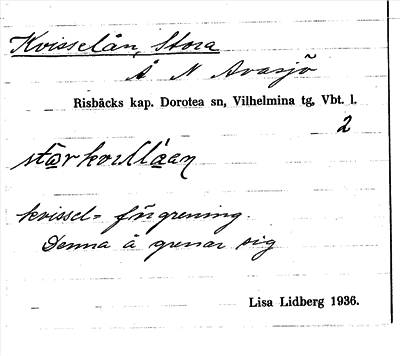 Kvisselån, Stora
Å N Avasjö
Risbäcks kap. Dorotea sn, Vilhelmina tg, Vbt. l.
2
kvissel- förgrening.
Denna å grenar sig
Lisa Lidberg 1936.